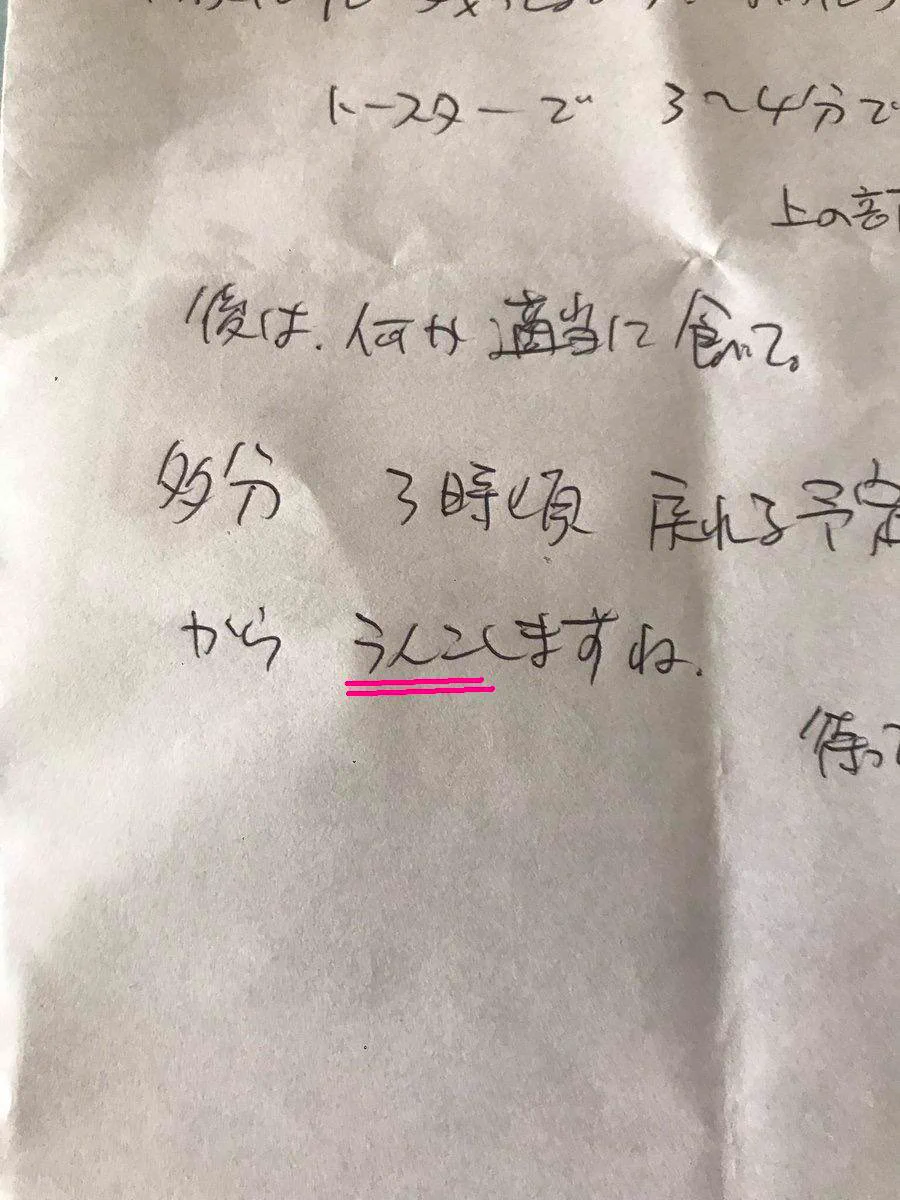 トースターで 3〜4分で
上の部
後は、何か適当に食べて。
多分 3時頃 戻れる予定
から うんこしますね、
待って